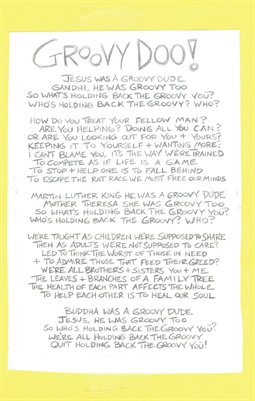 GROOVY DOO!
JESUS WAS A GROOVY DUDE
GANDHI, HE WAS GROOVY TOO
SO WHAT'S HOLDING BACK THE GROOVY YOU?
WHO'S HOLDING BACK THE GROOVY? WHO?
HOW DO YOU TREAT YOUR FELLOW MAN?
ARE YOU HELPING? DOING ALL YOU CAN?
OR ARE YOU LOOKING OUT FOR YOU + YOURS?
KEEPING IT TO YOURSELF + WANTING MORE;
I CAN'T BLAME YOU, IT'S THE WAY WE'RE TRAINED
TO COMPETE AS IF LIFE IS A GAME
TO STOP + HELP ONE IS TO FALL BEHIND
TO ESCAPE THE RAT RACE WE MUST FREE OUR MINDS
MARTIN LUTHER KING HE WAS A GROOVY DUDE
MOTHER THERESA SHE WAS GROOVY TOO
SO WHAT'S HOLDING BACK THE GROOVY YOU?
WHO'S HOLDING BACK THE GROOVY? WHO?
WE'RE TAUGHT AS CHILDREN WE'RE SUPPOSED TO SHARE
THEN AS ADULTS WE'RE NOT SUPPOSED TO CARE?
LED TO THINK THE WORST OF THOSE IN NEED
+ TO ADMIRE THOSE THAT FEED THEIR GREED?
WE'RE ALL BROTHERS + SISTERS YOU + ME
THE LEAVES + BRANCHES OF A FAMILY TREE
THE HEALTH OF EACH PART AFFECTS THE WHOLE
TO HELP EACH OTHER IS TO HEAL OUR SOUL
BUDDHA WAS A GROOVY DUDE
JESUS, HE WAS GROOVY TOO
SO WHO'S HOLDING BACK THE GROOVY YOU?
WE'RE ALL HOLDING BACK THE GROOVY
QUIT HOLDING BACK THE GROOVY YOU!